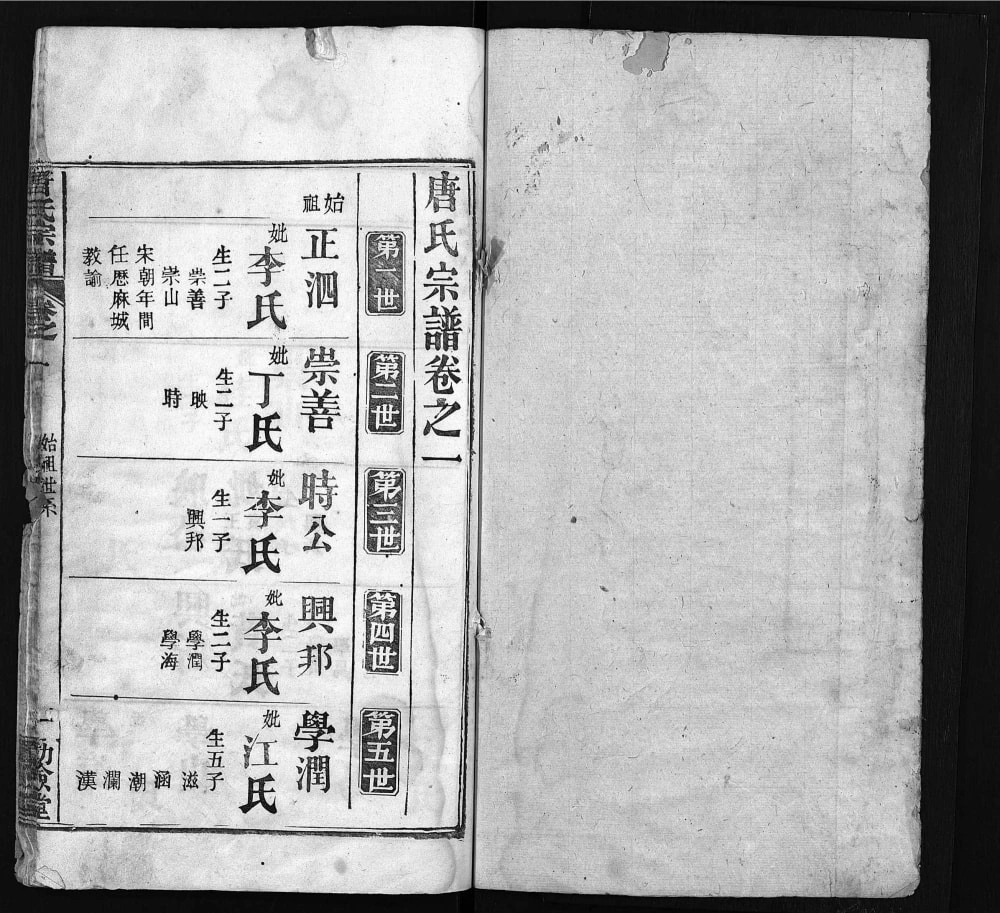 唐氏宗譜卷之一
第一世
始祖
正泗
妣李氏
生二子
崇善
崇山
宋朝年間
任歷麻城
教諭
第二世
崇善
妣丁氏
生二子
映
時
第三世
時公
妣李氏
生一子
興邦
第四世
興邦
妣李氏
生二子
學潤
學海
第五世
學潤
妣江氏
生五子
滋
涵
潮
瀾
漢
唐氏宗譜
卷之一
始祖世系
一
勤儉堂